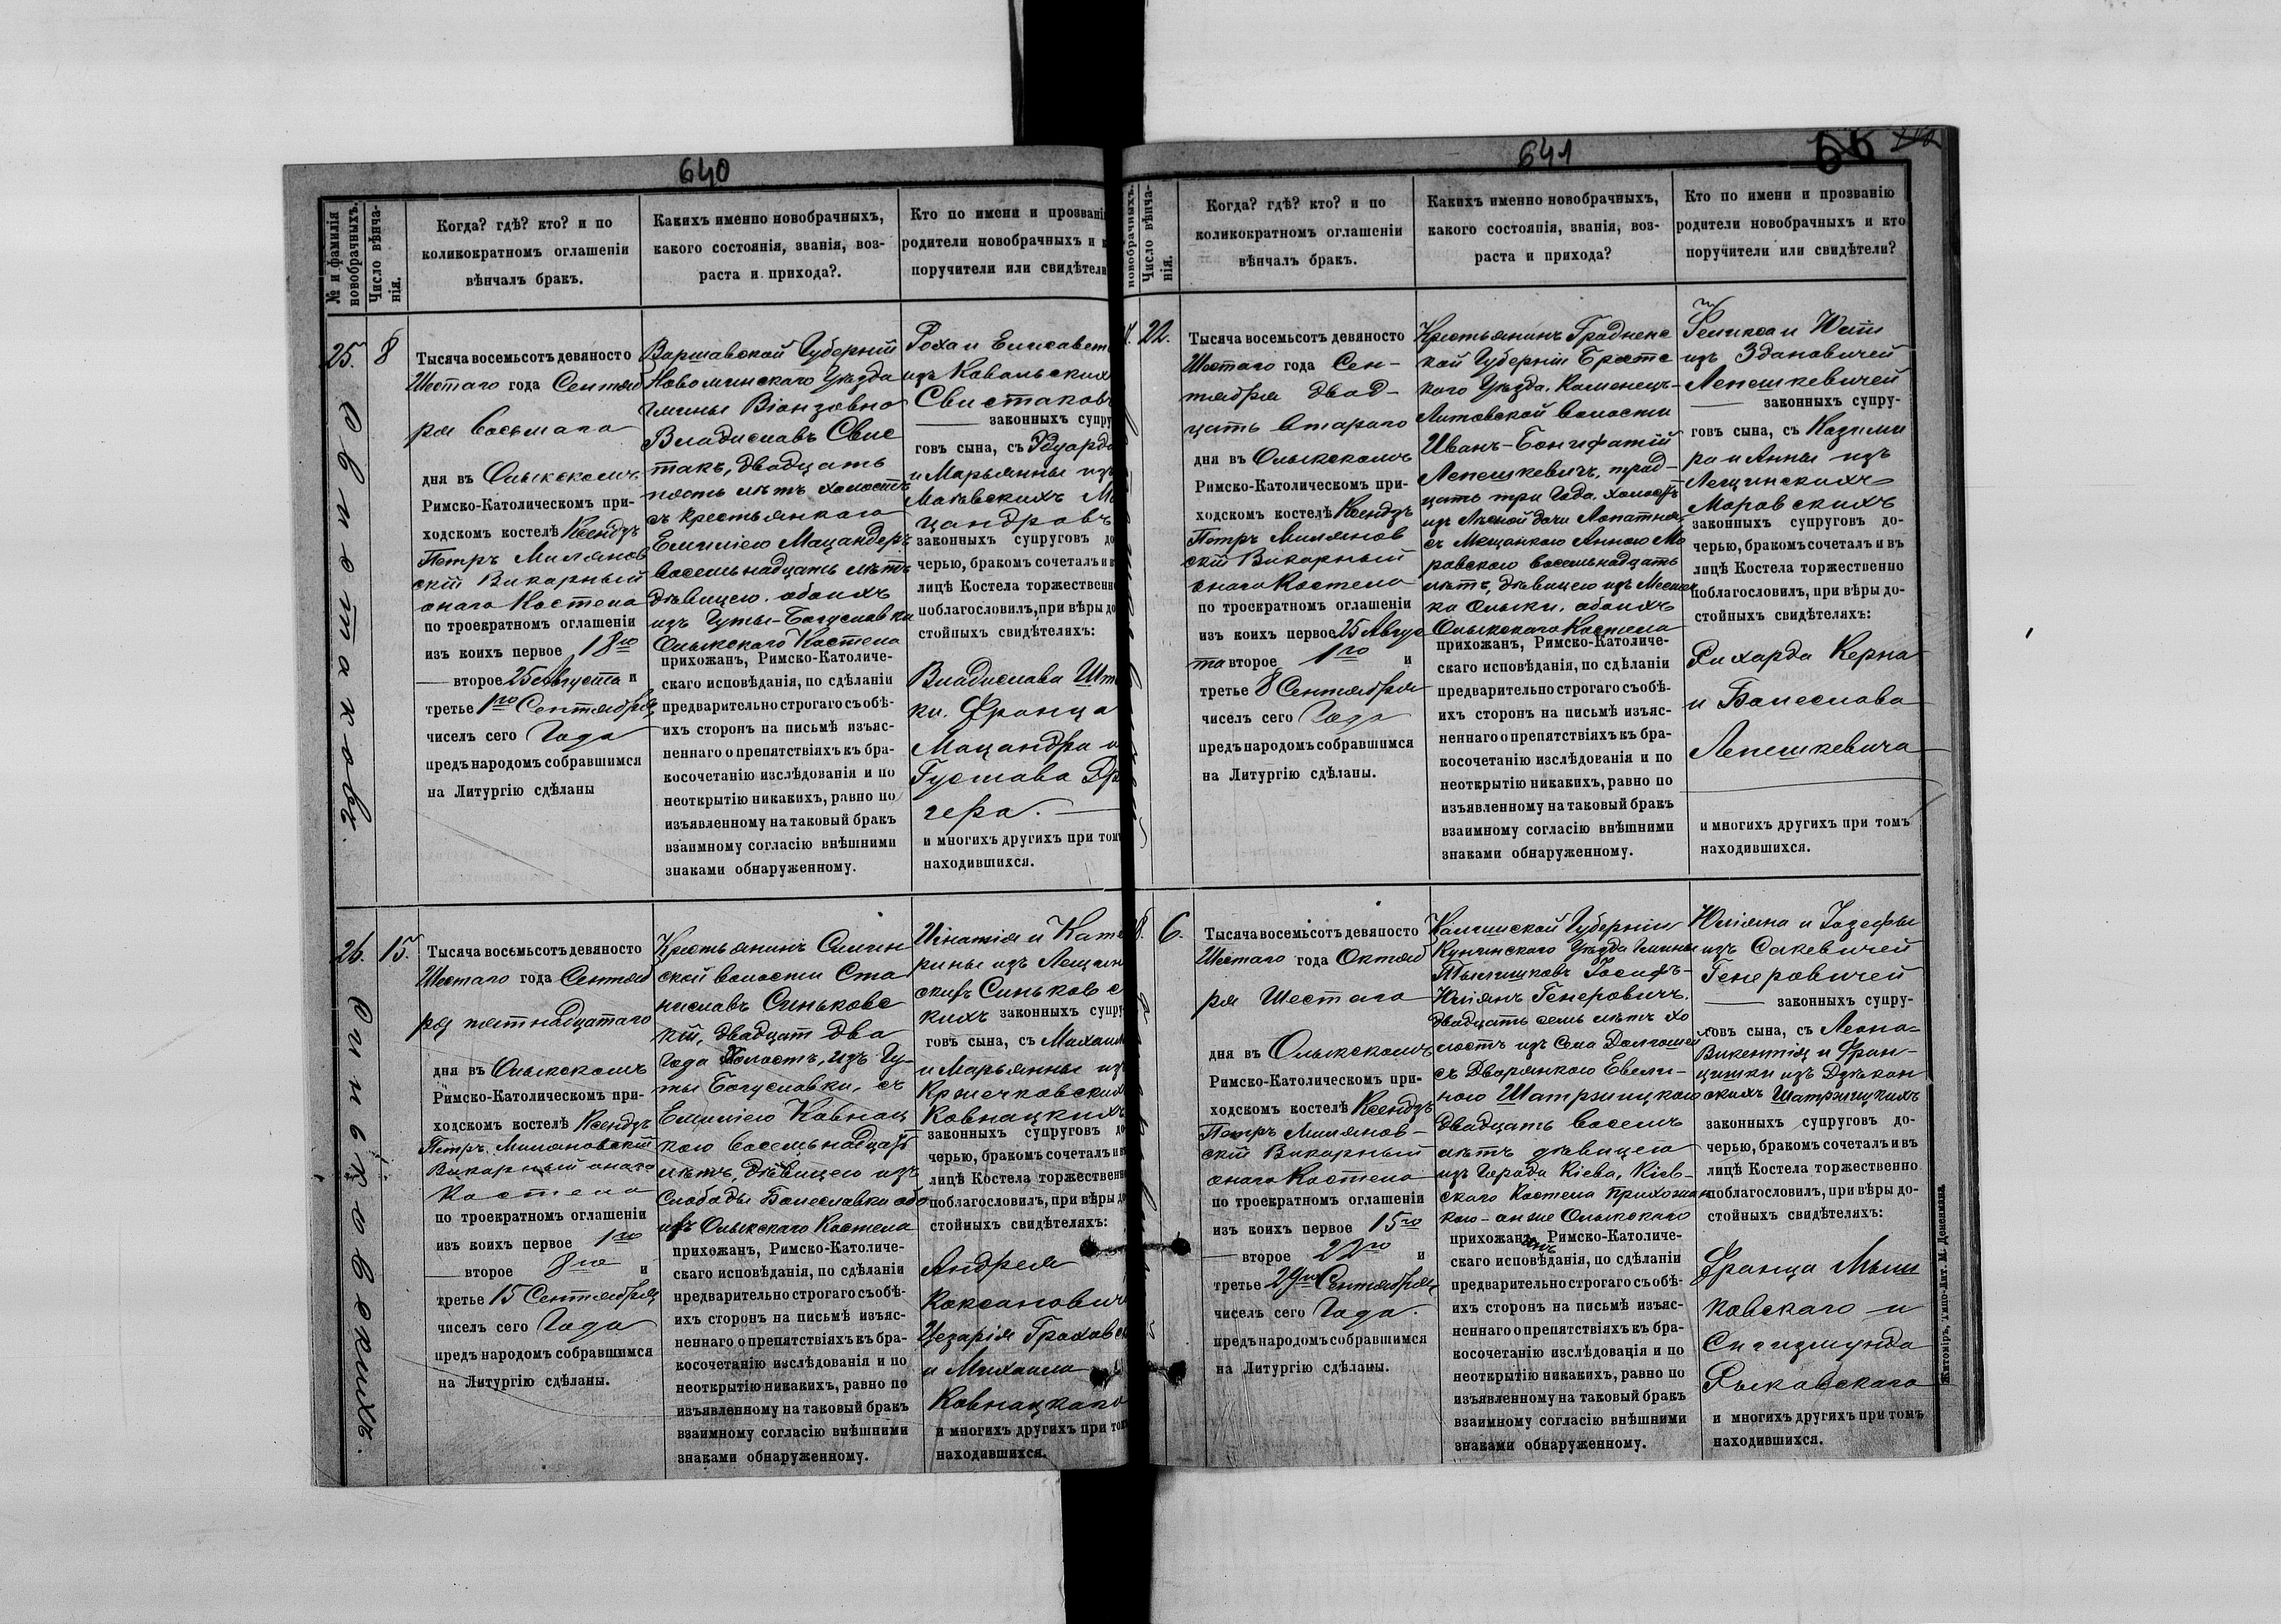 640
№ и фамилія
новобрачныхъ.
Число вѣнча-
нія.
Когда? гдѣ? кто? и по
коликократномъ оглашеніи
вѣнчалъ бракъ.
Какихъ именно новобрачныхъ,
какого состоянія, званія, воз-
раста и прихода?.
Кто по имени и прозвані
родители новобрачныхъ и
поручители или свидѣтели
25.
8
Свистаковъ.
Тысяча восемьсотъ девяносто
Шестаго года Сентяб
ря Восьмаго
дня въ Олыкскомъ
Римско-Католическомъ при-
ходскомъ костелѣ Ксендзъ
Петръ Миляновс
скій Викарный
онаго Костела
по троекратномъ оглашеніи
изъ коихъ первое 18го
второе 25 Августа и
третье 1го Сентября
чиселъ сего Года
предъ народомъ собравшимся
на Литургію сдѣланы
Варшавской Губерніи
Новоминскаго Уѣзда
гмины Віонзовно
Владиславъ Свис
такъ, двадцать
лѣтъ холостъ
съ крестьянкою
Емиліею Мацандеръ
восемьнадцать лѣтъ
дѣвицею. обоихъ
изъ Гуты-Богуславки
Олыкскаго Костела
прихожанъ, Римско-Католиче-
скаго исповѣданія, по сдѣланіи
предварительно строгаго съ обѣ-
ихъ сторонъ на письмѣ изъяс-
неннаго о препятствіяхъ къ бра-
косочетанію изслѣдованія и по
неоткрытію никакихъ, равно по
изъявленному на таковый бракъ
взаимному согласію внѣшними
знаками обнаруженному.
Роха и Елисавет
изъ Ковальских
Свистаков
законныхъ супру
говъ сына, съ Эдуарда
и Марьянны изъ
Маѣвскихъ Ма
цандровъ
законныхъ супруговъ до
черью, бракомъ сочеталъ и въ
лицѣ Костела торжественно
поблагословилъ, при вѣры до
стойныхъ свидѣтеляхъ:
Владислава Шт
ки. Франца
Мацандра и
Густава Др
гера.
и многихъ другихъ при томъ
находившихся.
26.
15.
Синьковскихъ.
Тысяча восемьсотъ девяносто
Шестаго года Сентяб
ря пятнадцатаго
дня въ Олыкскомъ
Римско-Католическомъ при-
ходскомъ костелѣ Ксендзъ
Петръ Миляновскій
Викарный онаго
Костела
по троекратномъ оглашеніи
изъ коихъ первое 1го
второе 8го и
третье 15 Сентября
чиселъ сего Года
предъ народомъ собравшимся
на Литургію сдѣланы.
Крестьянинъ Силин
ской волости Ста
ниславъ Синьковс
кій, двадцат два
года Холостъ, изъ Гу-
ты Богуславки, съ
Емиліею Ковнац
кою восемьнадцать
лѣтъ, дѣвицею изъ
Слободы Болеславки обо
ихъ Олыкскаго Костела
прихожанъ, Римско-Католиче-
скаго исповѣданія, по сдѣланіи
предварительно строгаго съ обѣ-
ихъ сторонъ на письмѣ изъяс-
неннаго о препятствіяхъ къ бра-
косочетанію изслѣдованія и по
неоткрытію никакихъ, равно по
изъявленному на таковый бракъ
взаимному согласію внѣшними
знаками обнаруженному.
Игнатія и Кате
рины изъ Лещин
скихъ Синьковс
кихъ законныхъ супру
говъ сына, съ Михаил
и Марьянны изъ
Кржечковских
Ковнацкихъ
законныхъ супруговъ до
черью, бракомъ сочеталъ и въ
лицѣ Костела торжественно
поблагословилъ, при вѣры до
стойныхъ свидѣтеляхъ:
Андрея
Коксанович
Цезарія Граховс
и Михаила
Ковнацкаго
и многихъ другихъ при том
находившихся.
641
66
новобрачныхъ.
Число вѣнча-
нія.
Когда? гдѣ? кто? и по
коликократномъ оглашеніи
вѣнчалъ бракъ.
Какихъ именно новобрачныхъ,
какого состоянія, званія, воз-
раста и прихода?
Кто по имени и прозванію
родители новобрачныхъ и кто
поручители или свидѣтели?
22.
Тысяча восемьсотъ девяносто
Шестаго года Сен-
тября двад-
цать втараго
дня въ Олыкскомъ
Римско-Католическомъ при-
ходскомъ костелѣ Ксендзъ
Петръ Милянов
скій Викарный
онаго Костела
по троекратномъ оглашеніи
изъ коихъ первое 25 Авгус
та второе 1го и
третье 8 Сентября
чиселъ сего Года
предъ народомъ собравшимся
на Литургію сдѣланы.
Крестьянинъ Гродненс
кой Губерніи Брестс
каго Уѣзда. Каменецъ-
Литовской волости
Иванъ-Бонифатій
Лепешкевичъ, трид-
цать три Года. холостъ
изъ Лѣсной дачи Лопатная
съ Мещанкою Анною Мо
ровскою восемьнадцать
лѣтъ, дѣвицею изъ Местеч
ка Олыки. обоихъ
Олыкскаго Костела
прихожанъ, Римско-Католиче-
скаго исповѣданія, по сдѣланіи
предварительно строгаго съ обѣ-
ихъ сторонъ на письмѣ изъяс-
неннаго о препятствіяхъ къ бра-
косочетанію изслѣдованія и по
неоткрытію никакихъ, равно по
изъявленному на таковый бракъ
взаимному согласію внѣшними
знаками обнаруженному.
Феликса и
изъ Здановичей
Лепешкевичей
законныхъ супру-
говъ сына, съ Казими
ра и Анны изъ
Лещинскихъ
Моровскихъ
законныхъ супруговъ до-
черью, бракомъ сочеталъ и въ
лицѣ Костела торжественно
поблагословилъ, при вѣры до-
стойныхъ свидѣтеляхъ:
Рихарда Керна
и Болеслава
Лепешкевича
и многихъ другихъ при томъ
находившихся.
6.
Тысяча восемьсотъ девяносто
Шестаго года Октяб
ря Шестаго
дня въ Олыкскомъ
Римско-Католическомъ при-
ходскомъ костелѣ Ксендзъ
Петръ Милянов-
скій Викарный
онаго Костела
по троекратномъ оглашеніи
изъ коихъ первое 15го
второе 22го и
третье 29го Сентября
чиселъ сего Года.
предъ народомъ собравшимся
на Литургію сдѣланы.
Калишской Губерніи
Уѣзда гмины
Іосифъ-
Юліянъ Генеровичъ.
двадцать семь лѣтъ хо
лостъ изъ Села Долгошей
съ Дворянкою Евели-
ною Шатржицкою
двадцать восемъ
лѣтъ дѣвицею
изъ Города Кіева, Кіев-
скаго Костела прихожан
кою - онже Олыкскаго
прихожанинъ Римско-Католиче-
скаго исповѣданія, по сдѣланіи
предварительно строгаго съ обѣ-
ихъ сторонъ на письмѣ изъяс-
неннаго о препятствіяхъ къ бра-
косочетанію изслѣдованія и по
неоткрытію никакихъ, равно по
изъявленному на таковый бракъ
взаимному согласію внѣшними
знаками обнаруженному.
Юліяна и Іозефы
изъ Сакевичей
Генеровичей
законныхъ супру-
говъ сына, съ Леона-
Викентія и Фран-
цишки изъ Дзѣкон
скихъ Шатржицкихъ
законныхъ супруговъ до-
черью, бракомъ сочеталъ и въ
лицѣ Костела торжественно
поблагословилъ, при вѣры до-
стойныхъ свидѣтеляхъ:
Франца Мыш
ковскаго и
Сигизмунда
Рыковскаго
и многихъ другихъ при томъ
находившихся.
Житоміръ, Типо-Лит. М. Дененмана.